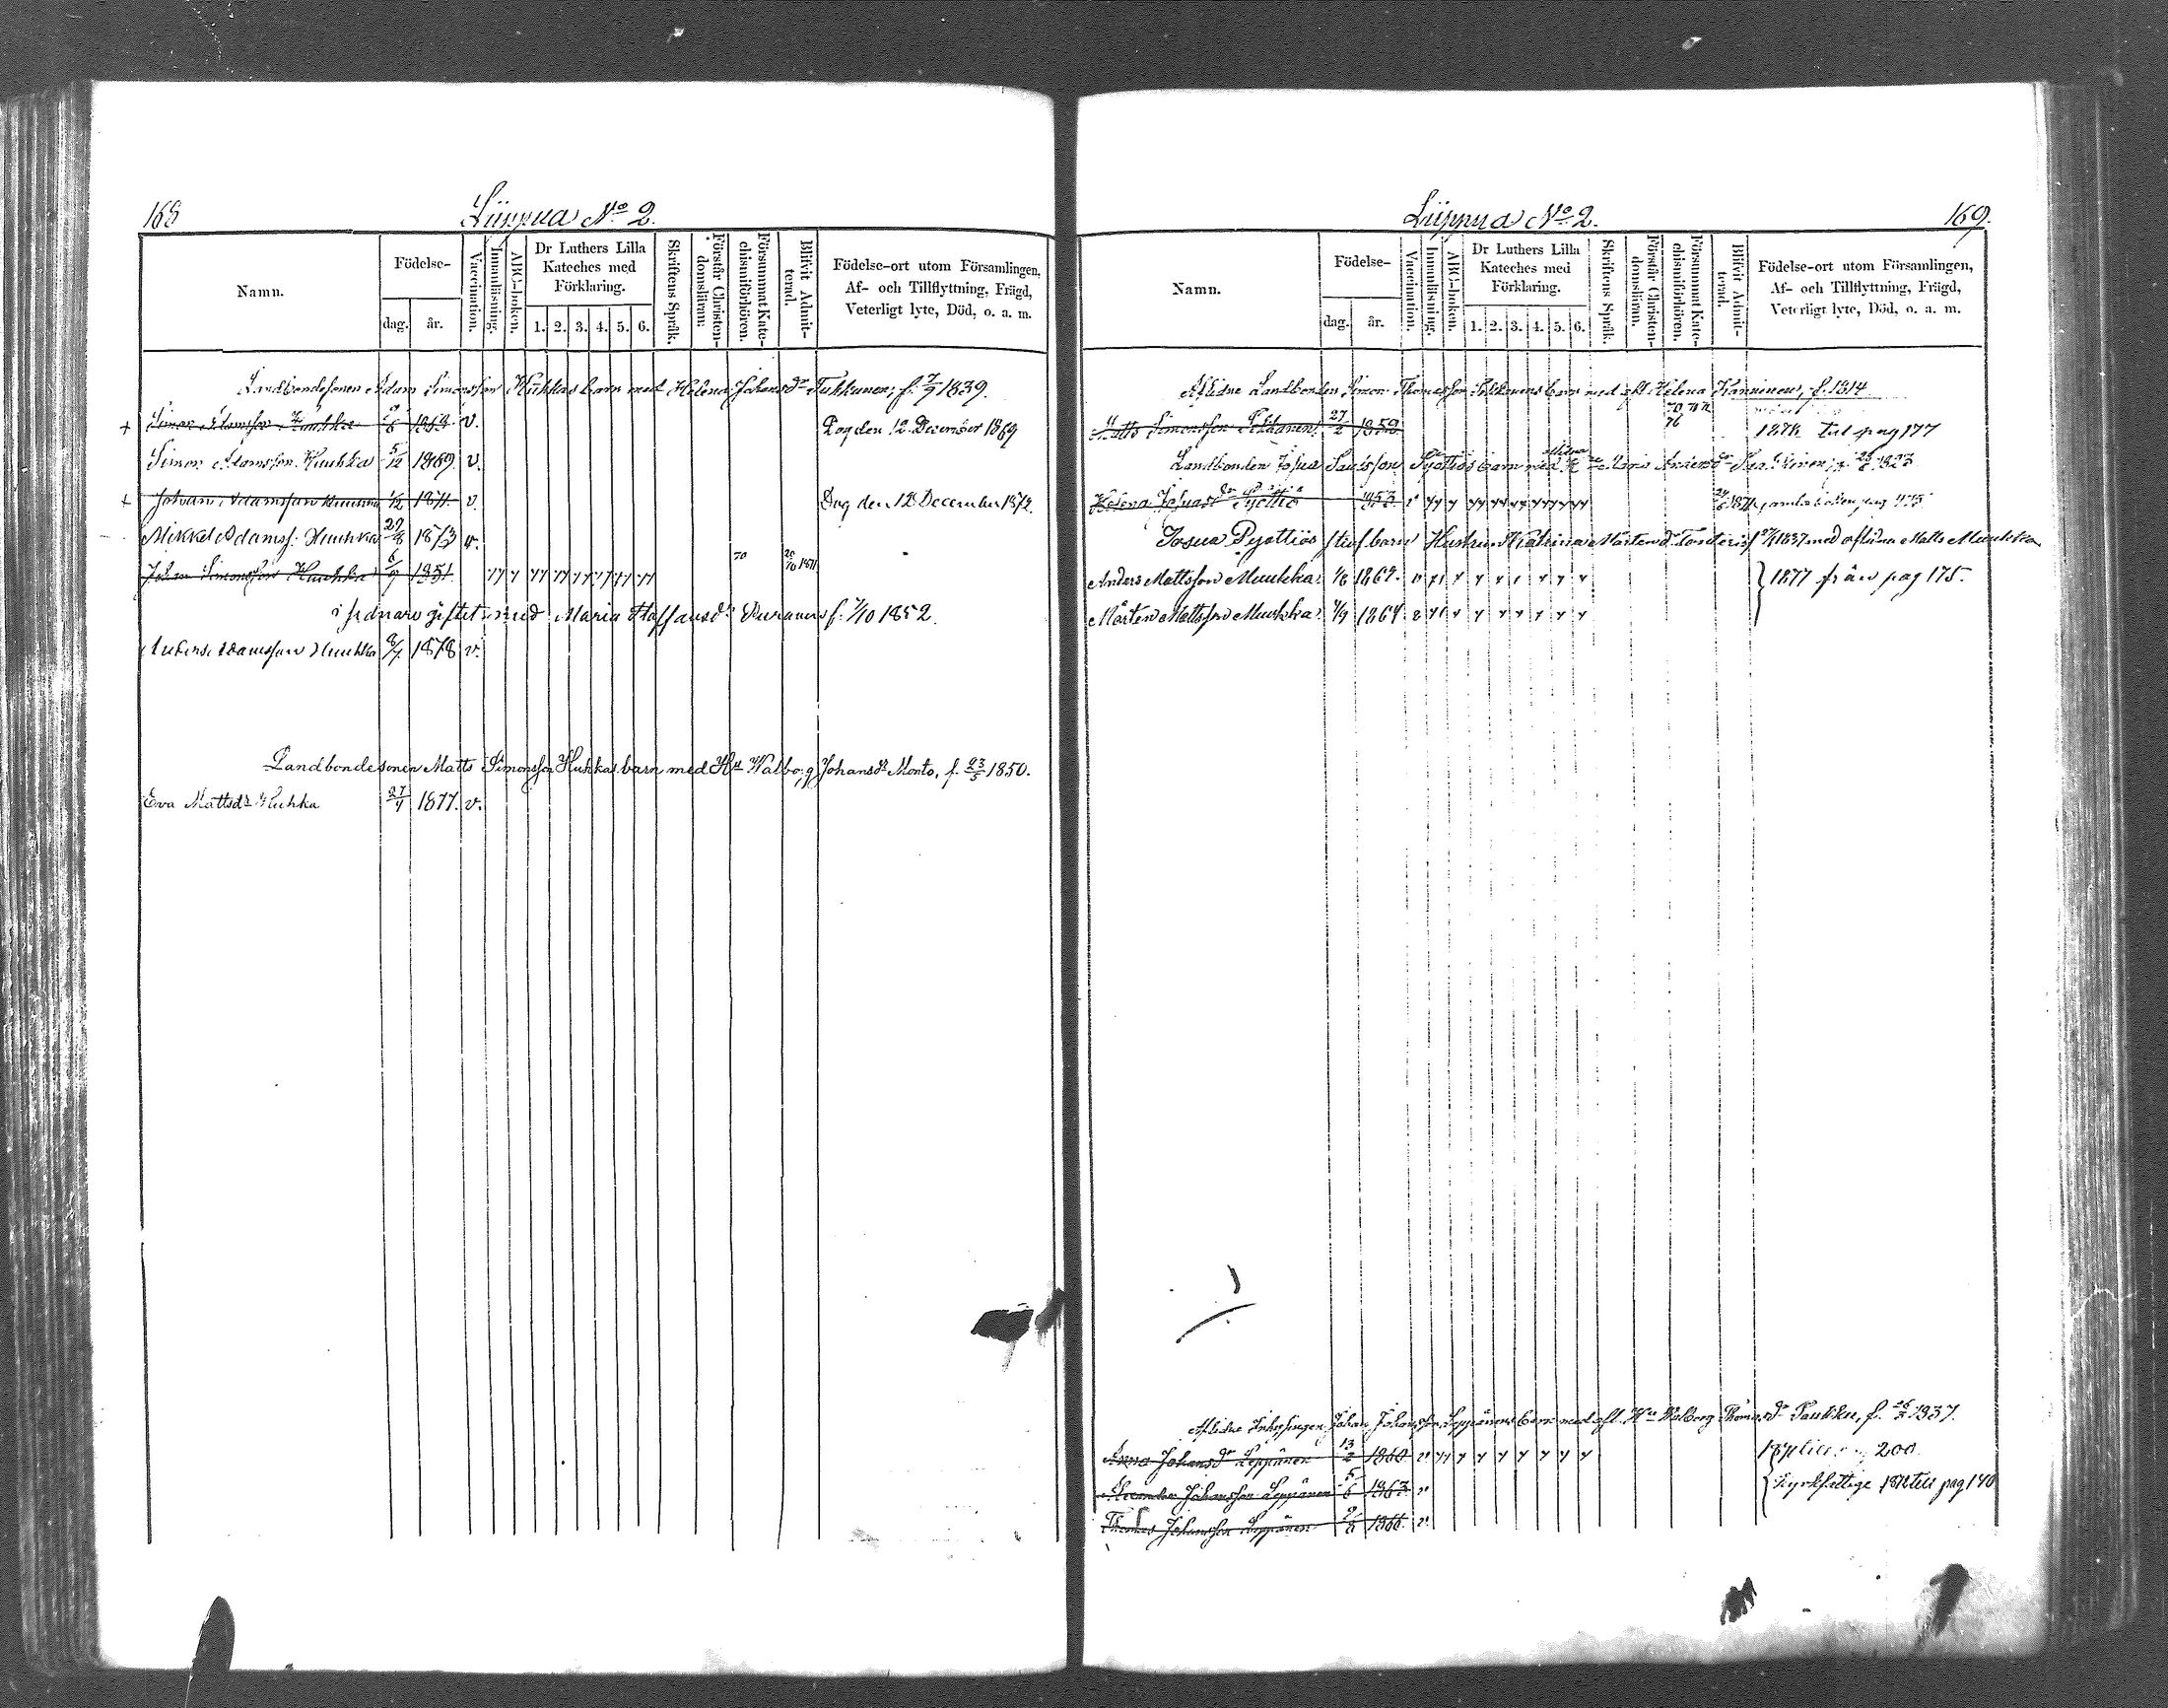 168
Lüppua No 2.
Namn.
Födelse-
dag.
år.
Vaccination.
Innanläsning.
ABC-boken.
Dr Luthers Lilla Kateches med Förklaring.
1. 2. 3. 4. 5. 6.
Skriftens Språk.
Förstår Christendomslitam:
Försummat Katechismiförhören.
Blifvit Admitterad.
Födelse-ort utom Församlingen,
Af- och Tillflyttning, Frägd,
Veterligt lyte, Död, o. a. m.
Landbondesonen Adam Simonsson Huhkas barn med Helena Johansdr Tukkunen, f. 7/9 1839.
+ Simon Adamsson Huuhka v. Dog den 12 December 1869
Simon Adamsson Huuhka 5/12 1869 v.
+ Johan Adamsson 1/2 1871. v. Dog den 12 December 1872.
Mikkel Adamss. Huuhka 27/8 1873 v.
Johan Simonsson Huuhka 6/9 1851. 70 1871
i sednare giftet med Maria Staffansdr f. 1/10 1852.
Anders Adamsson Huuhka 8/7 1878 v.
Landbondesonen Matts Simonsson Huhkas barn med Hu Walborg Johansdr Monto, f. 23/5 1850.
Eva Mattsdr Huhka 27/4 1877. v.
Lüppua No 2.
169.
Namn.
Födelse-
dag.
år.
Vaccination.
Innanläsning.
ABC-boken.
Dr Luthers Lilla Kateches med Förklaring.
1. 2. 3. 4. 5. 6.
Skriftens Språk.
Förstår Christendomslitam.
Försummat Katechismiförhören.
Blifvit Admitterad.
Födelse-ort utom Församlingen,
Af- och Tillflyttning, Frägd,
Veterligt lyte, Död, o. a. m.
Aflidne Landbonden Simon Thomasson barn med afl. Helena f. 1814
Matts Simonsson 27/2 1859 76 till pag 177
Landbonden Josua Pyöttiös barn med 1823
Helena Josuasdr Pyöttiö 1853 v
Josua Pyöttiös stiufbarn Hustrun Katrina Mårtensdr 1837 med aflidna Matts Muukka
Anders Mattsson Muukka. 1/6 1861. v } 1877 från pag 175.
Mårten Mattsson Muukka. 4/9 1864. v
Aflidne Inhysingen Johan Johansson Leppänens barn med afl. Hu Walborg Thomasdr f. 1837.
Anna Johansdr Leppänen 13/2 1860 v 200.
Alexander Johansson Leppänen 5/6 1863 v { pag 140
Thomas Johansson Leppänen 1866. v.